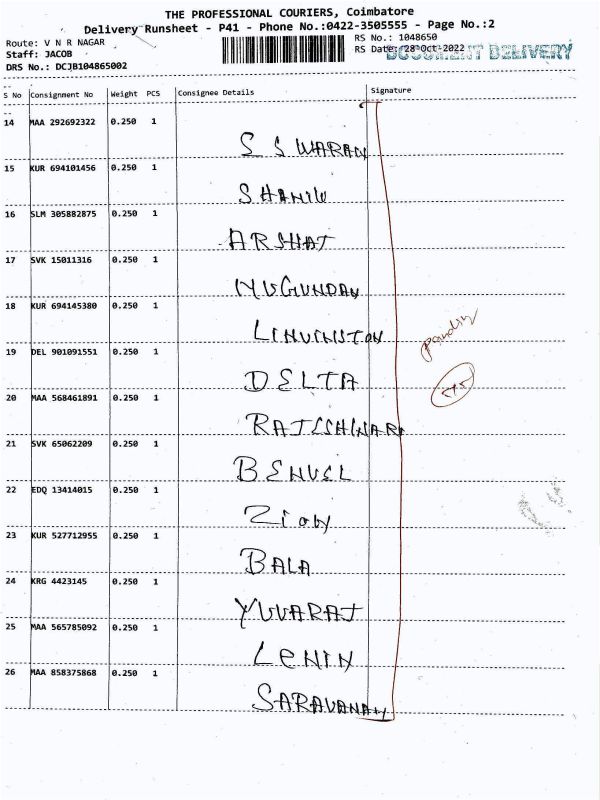 THE PROFESSIONAL COURIERS, Coimbatore
Delivery Runsheet - P41 - Phone No.:0422-3505555 - Page No.:2
Route: V N R NAGAR
Staff: JACOB
DRS No.: DCJB104865002
RS No.: 1048650
RS Date: 28-Oct-2022
DOCUMENT DELIVERY
S No Consignment No Weight PCS Consignee Details Signature
14 MAA 292692322 0.250 1
S S WARAN
15 KUR 694101456 0.250 1
16 SLM 305882875 0.250 1
ARSHAT
17 SVK 15011316 0.250 1
MUGUNDAN
18 KUR 694145380 0.250 1
19 DEL 901091551 0.250 1
DELTA
20 MAA 568461891 0.250 1
21 SVK 65062209 0.250 1
22 EDQ 13414015 0.250 1
23 KUR 527712955 0.250 1
BALA
24 KRG 4423145 0.250 1
YUVARAJ
25 MAA 565785092 0.250 1
LENIN
26 MAA 858375868 0.250 1
SARAVANAN